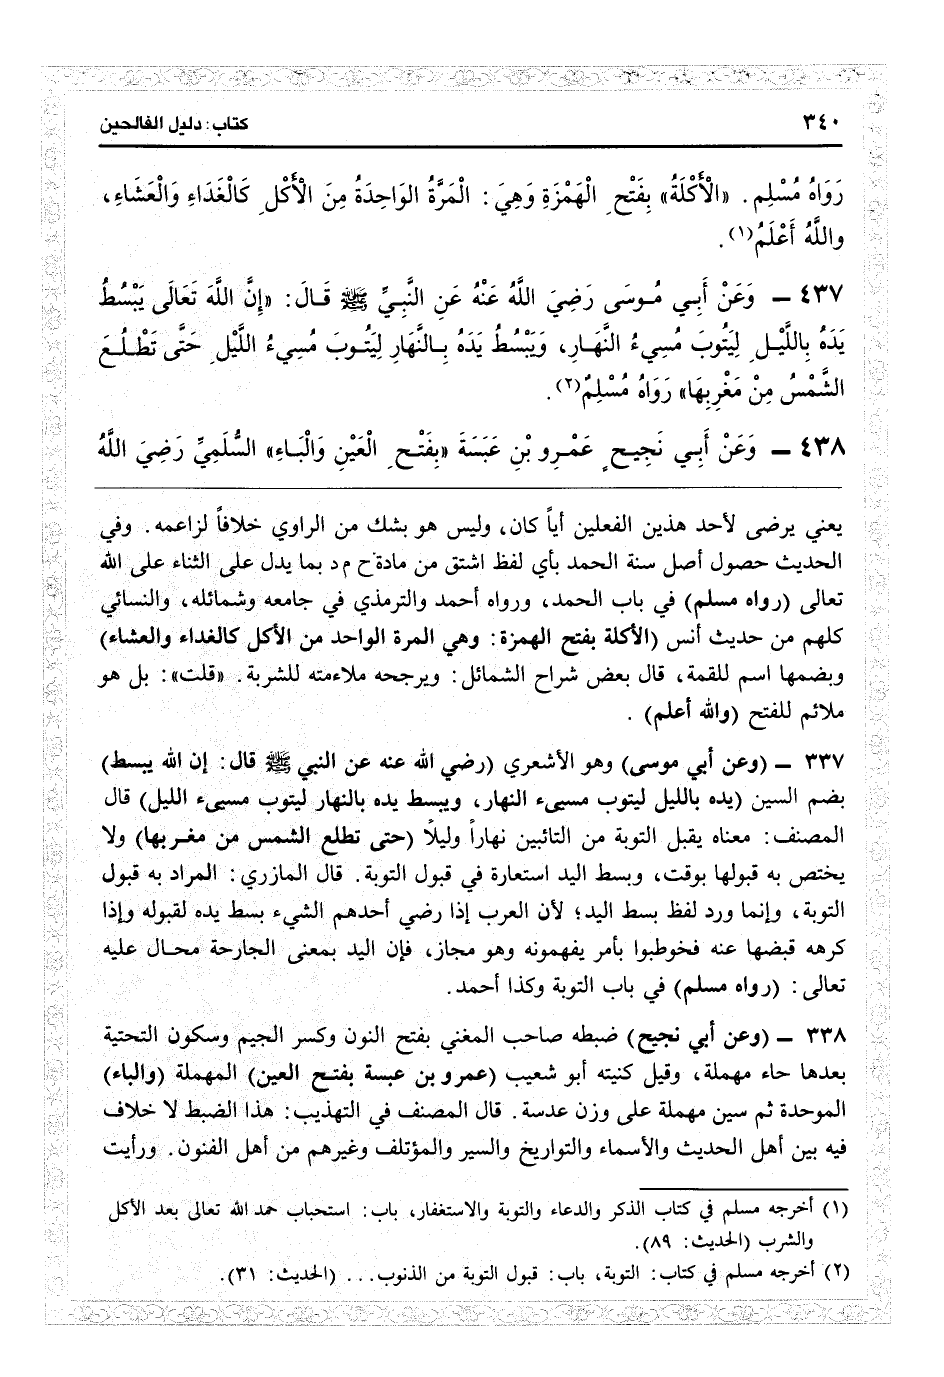 ٣٤٠
كتاب: دليل الفالحين
رَوَاهُ مُسْلِم. «الْأَكْلَةُ» بِفَتْحِ الْهَمْزَةِ وَهِيَ: الْمَرَّةُ الوَاحِدَةُ مِنَ الْأَكْلِ كَالْغَدَاءِ وَالْعَشَاءِ،
واللَّهُ أَعْلَمُ(١).
٤٣٧ – وَعَنْ أَبِي مُوسَى رَضِيَ اللَّهُ عَنْهُ عَنِ النَّبِيِّ ﷺ قَالَ: «إِنَّ اللَّهَ تَعَالَى يَبْسُطُ
يَدَهُ بِاللَّيْلِ لِيَتُوبَ مُسِيءُ النَّهَارِ، وَيَبْسُطُ يَدَهُ بِالنَّهَارِ لِيَتُوبَ مُسِيءُ اللَّيْلِ حَتَّى تَطْلُعَ
الشَّمْسُ مِنْ مَغْرِبِهَا» رَوَاهُ مُسْلِمٌ(٢).
٤٣٨ – وَعَنْ أَبِي نَجِيحٍ عَمْرِو بْنِ عَبَسَةَ «بِفَتْحِ الْعَيْنِ وَالْبَاءِ» السُّلَمِيِّ رَضِيَ اللَّهُ
يعني يرضى لأحد هذين الفعلين أياً كان، وليس هو بشك من الراوي خلافاً لزاعمه. وفي
الحديث حصول أصل سنة الحمد بأي لفظ اشتق من مادة ح م د بما يدل على الثناء على الله
تعالى (رواه مسلم) في باب الحمد، ورواه أحمد والترمذي في جامعه وشمائله، والنسائي
كلهم من حديث أنس (الأكلة بفتح الهمزة: وهي المرة الواحد من الأكل كالغداء والعشاء)
وبضمها اسم للقمة، قال بعض شراح الشمائل: ويرجحه ملاءمته للشربة. «قلت»: بل هو
ملائم للفتح (والله أعلم) .
٣٣٧ – (وعن أبي موسى) وهو الأشعري (رضي الله عنه عن النبي ﷺ قال: إن الله يبسط)
بضم السين (يده بالليل ليتوب مسيء النهار، ويبسط يده بالنهار ليتوب مسيء الليل) قال
المصنف: معناه يقبل التوبة من التائبين نهاراً وليلًا (حتى تطلع الشمس من مغربها) ولا
يختص به قبولها بوقت، وبسط اليد استعارة في قبول التوبة. قال المازري: المراد به قبول
التوبة، وإنما ورد لفظ بسط اليد؛ لأن العرب إذا رضي أحدهم الشيء بسط يده لقبوله وإذا
كرهه قبضها عنه فخوطبوا بأمر يفهمونه وهو مجاز، فإن اليد بمعنى الجارحة محال عليه
تعالى: (رواه مسلم) في باب التوبة وكذا أحمد.
٣٣٨ – (وعن أبي نجيح) ضبطه صاحب المغني بفتح النون وكسر الجيم وسكون التحتية
بعدها حاء مهملة، وقيل كنيته أبو شعيب (عمرو بن عبسة بفتح العين) المهملة (والباء)
الموحدة ثم سين مهملة على وزن عدسة. قال المصنف في التهذيب: هذا الضبط لا خلاف
فيه بين أهل الحديث والأسماء والتواريخ والسير والمؤتلف وغيرهم من أهل الفنون. ورأيت
(١) أخرجه مسلم في كتاب الذكر والدعاء والتوبة والاستغفار، باب: استحباب حمد الله تعالى بعد الأكل
والشرب (الحديث: ٨٩).
(٢) أخرجه مسلم في كتاب: التوبة، باب: قبول التوبة من الذنوب... (الحديث: ٣١).